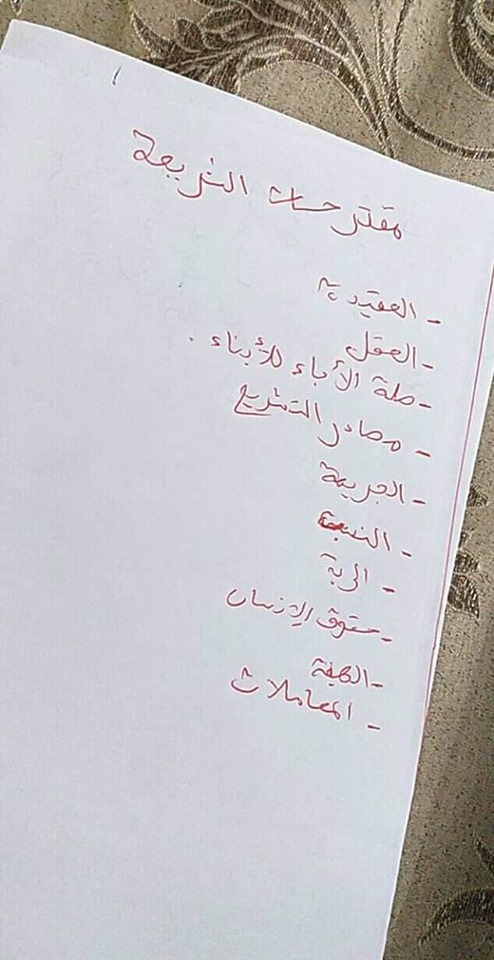 مقترحات الشريعة
- العقيدة
- العقل
- صلة الأباء للأبناء .
- مصادر التشريع
- الجريمة
-
-
- حقوق الإنسان
-
- المعاملات